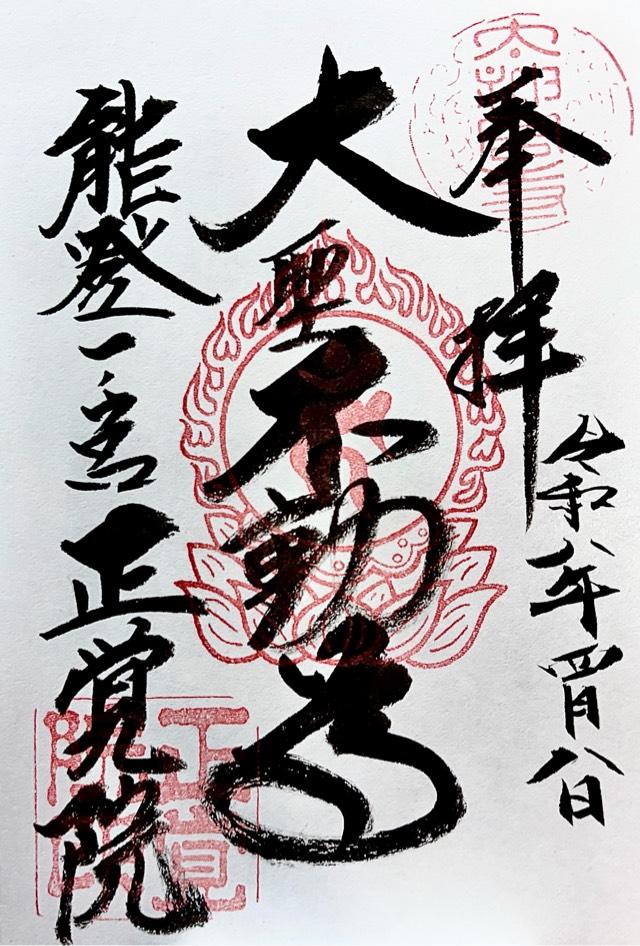 奉拝
令和八年四月八日
大聖不動尊
能登一ノ宮
正覚院
正覚院